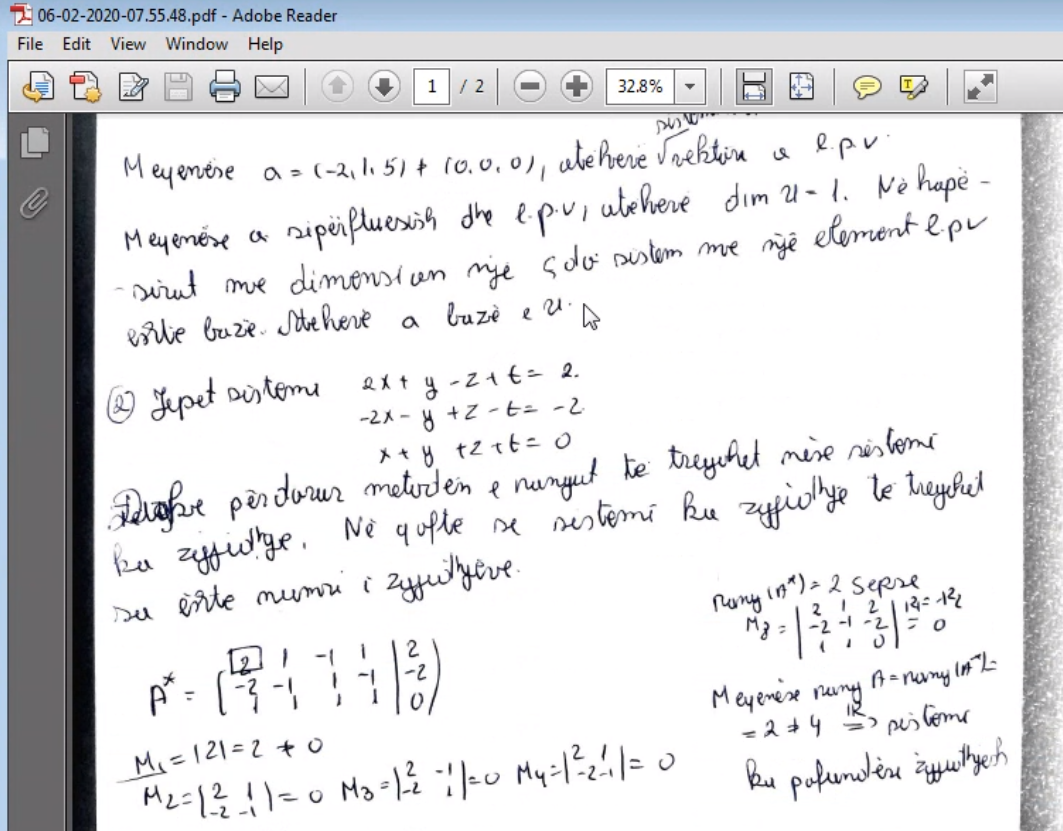 06-02-2020-07.55.48.pdf - Adobe Reader
File Edit View Window Help
1 / 2 32.8%
sistemi
Meqenëse a = (-2, 1, 5) ≠ (0, 0, 0), atëherë vektori a l.p.v.
Meqenëse a sipërftuesish dhe l.p.v, atëherë dim U = 1. Në hapë-
-sirat me dimension një çdo sistem me një element l.p.v
është bazë. Atëherë a bazë e U.
② Jepet sistemi 2x + y - z + t = 2.
-2x - y + z - t = -2
x + y + z + t = 0
përdorur metodën e rangut të tregohet nëse sistemi
ka zgjidhje. Në qoftë se sistemi ka zgjidhje të tregohet
sa është numri i zgjidhjeve.
rang (A*) = 2 sepse
M3 = | 2 1 2 | = 0
-2 -1 -2
1 1 0
A* = ( 2 1 -1 1 | 2
-2 -1 1 -1 | -2
1 1 1 1 | 0 )
Meqenëse rang A = rang (A*) =
= 2 ≠ 4 ⟹ sistemi
ka pafundësi zgjidhjesh
M1 = |2| = 2 ≠ 0
M2 = | 2 1 | = 0 M3 = | 2 -1 | = 0 M4 = | 2 1 | = 0
-2 -1 -2 1 -2 -1